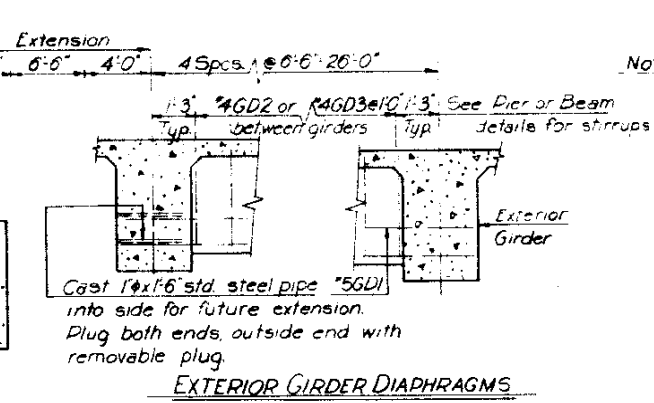 Extension
6'-6" 4'-0" 4 Spcs. @ 6'-6"= 26'-0" No
1'-3" #4GD2 or #4GD3@1'-0" 1'-3" See Pier or Beam
Typ. between girders Typ. details for stirrups
Exterior
Girder
Cast 1"φx1'-6" std. steel pipe #5GD1
into side for future extension.
Plug both ends, outside end with
removable plug.
EXTERIOR GIRDER DIAPHRAGMS